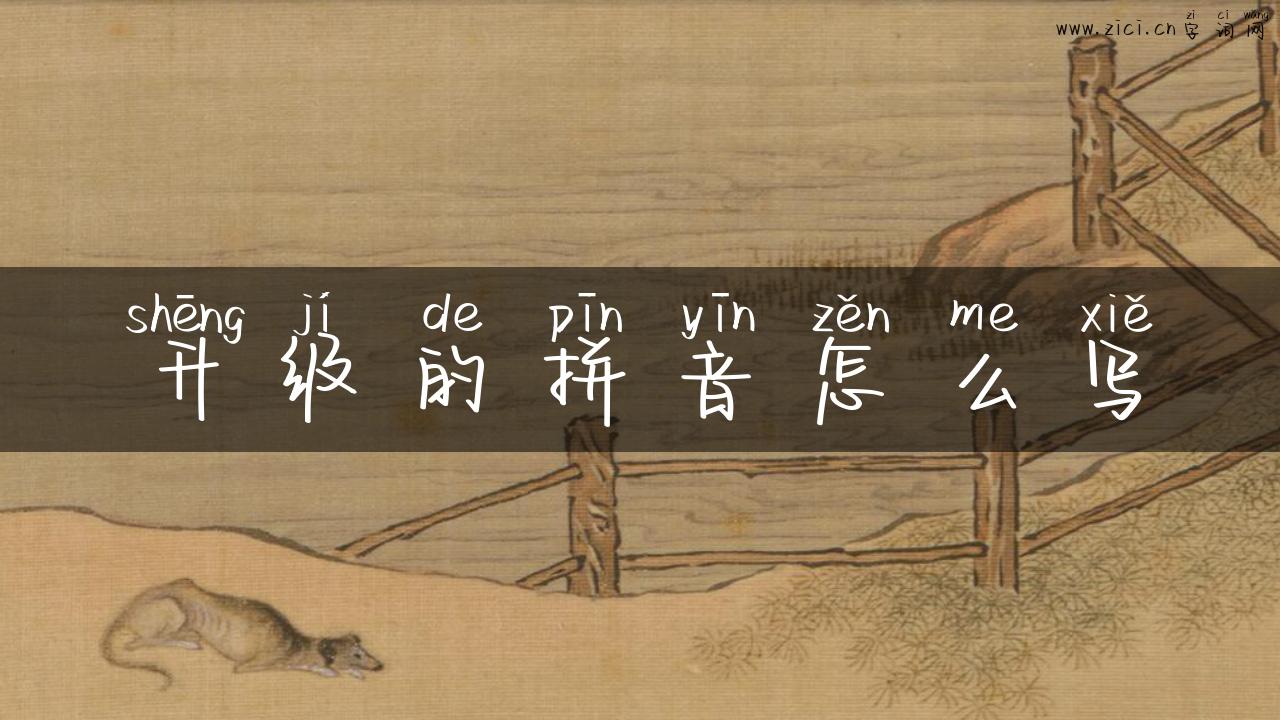 zì cí wǎng
www.zici.cn 字词网
shēng jí de pīn yīn zěn me xiě
升级的拼音怎么写